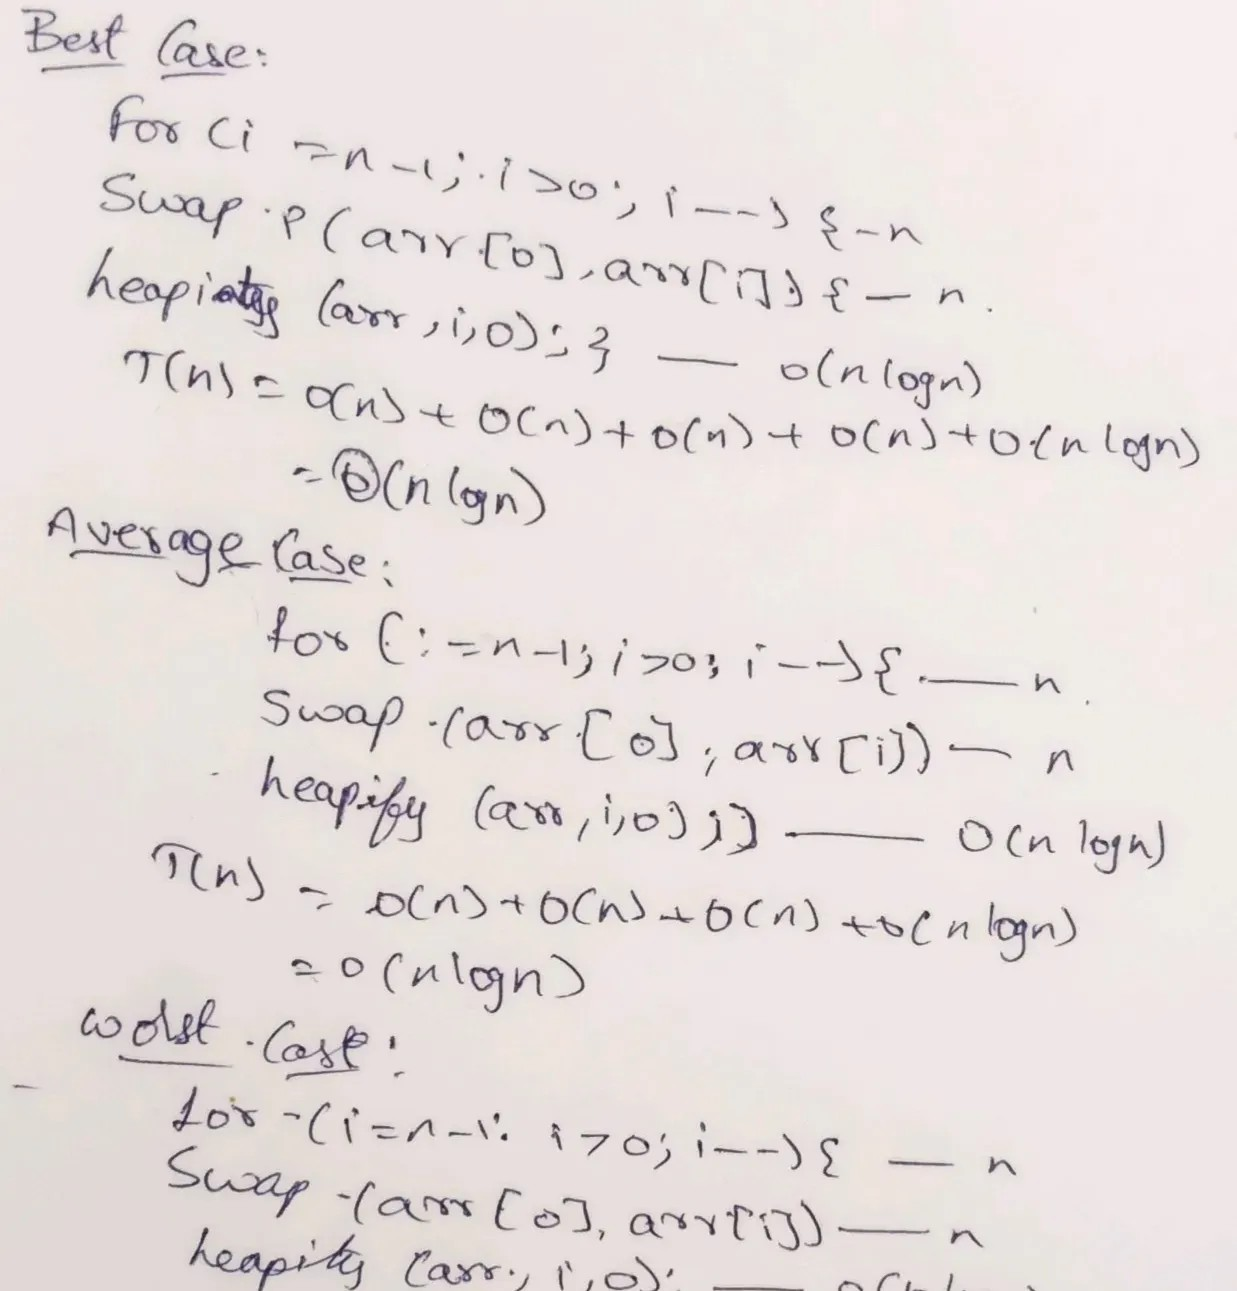 Best Case:
for (i =n-1; i>0; i--) { -n
Swap P(arr[0], arr[i]) { - n.
(arr, i, 0); } — O(n logn)
T(n) = O(n) + O(n) + O(n) + O(n) + O(n logn)
= O(n logn)
Average Case:
for (i =n-1; i>0; i--) { — n.
Swap (arr[0], arr[i]) — n
heapify (arr, i, 0); } — O(n logn)
T(n) = O(n) + O(n) + O(n) + O(n logn)
= O(n logn)
Worst Case:
for (i=n-1; i>0; i--) { — n
Swap (arr[0], arr[i]) — n
heapify (arr, i, 0);